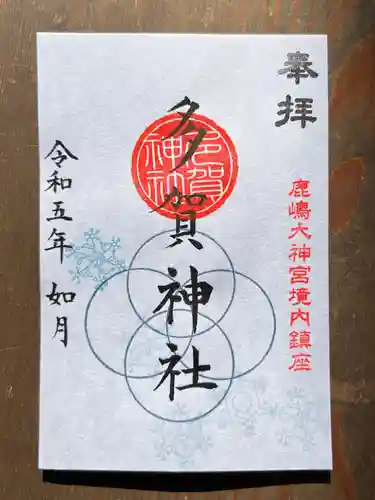 奉拝
鹿嶋大神宮境内鎮座
多賀神社
多賀神社
令和五年 如月